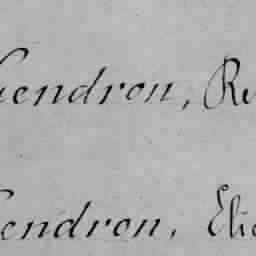 Gendron, Re
Gendron, Elie